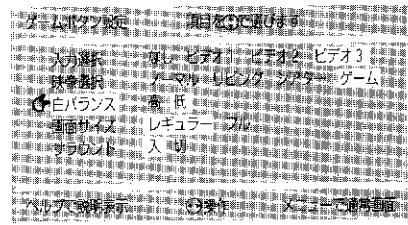 ゲームボタン設定 項目を で選びます
入力選択 なし ビデオ1 ビデオ2 ビデオ3
映像選択 ノーマル リビング シアター ゲーム
白バランス 高 低
画面サイズ レギュラー フル
サラウンド 入 切
ヘルプで説明表示 操作 メニューで通常画面